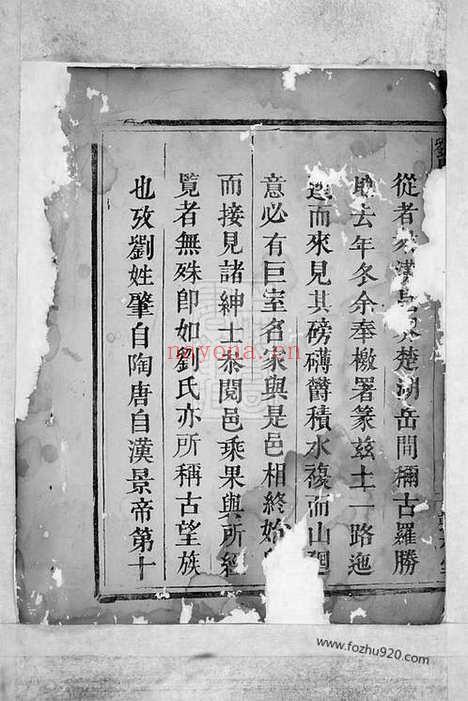 從者 漢 楚湖岳間稱古羅勝
去年冬余奉檄署篆兹土一路迤
而來見其磅礴欝積水複而山迴
意必有巨室名家與是邑相終始
而接見諸紳士泰閱邑乘果與所經
覽者無殊即如劉氏亦所稱古望族
也攷劉姓肇自陶唐自漢景帝第十
nayona.cn
www.fozhu920.com